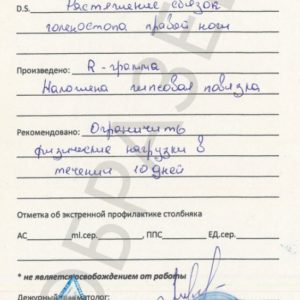 D.S. Растяжение связок
голеностопа правой ноги
Произведено: R-грамма
Наложена гипсовая повязка
Рекомендовано: Ограничить
физические нагрузки в
течении 10 дней
Отметка об экстренной профилактике столбняка
АС ml.сер. , ППС ЕД.сер.
* не является освобождением от работы
Дежурный травматолог:
ОБРАЗЕЦ